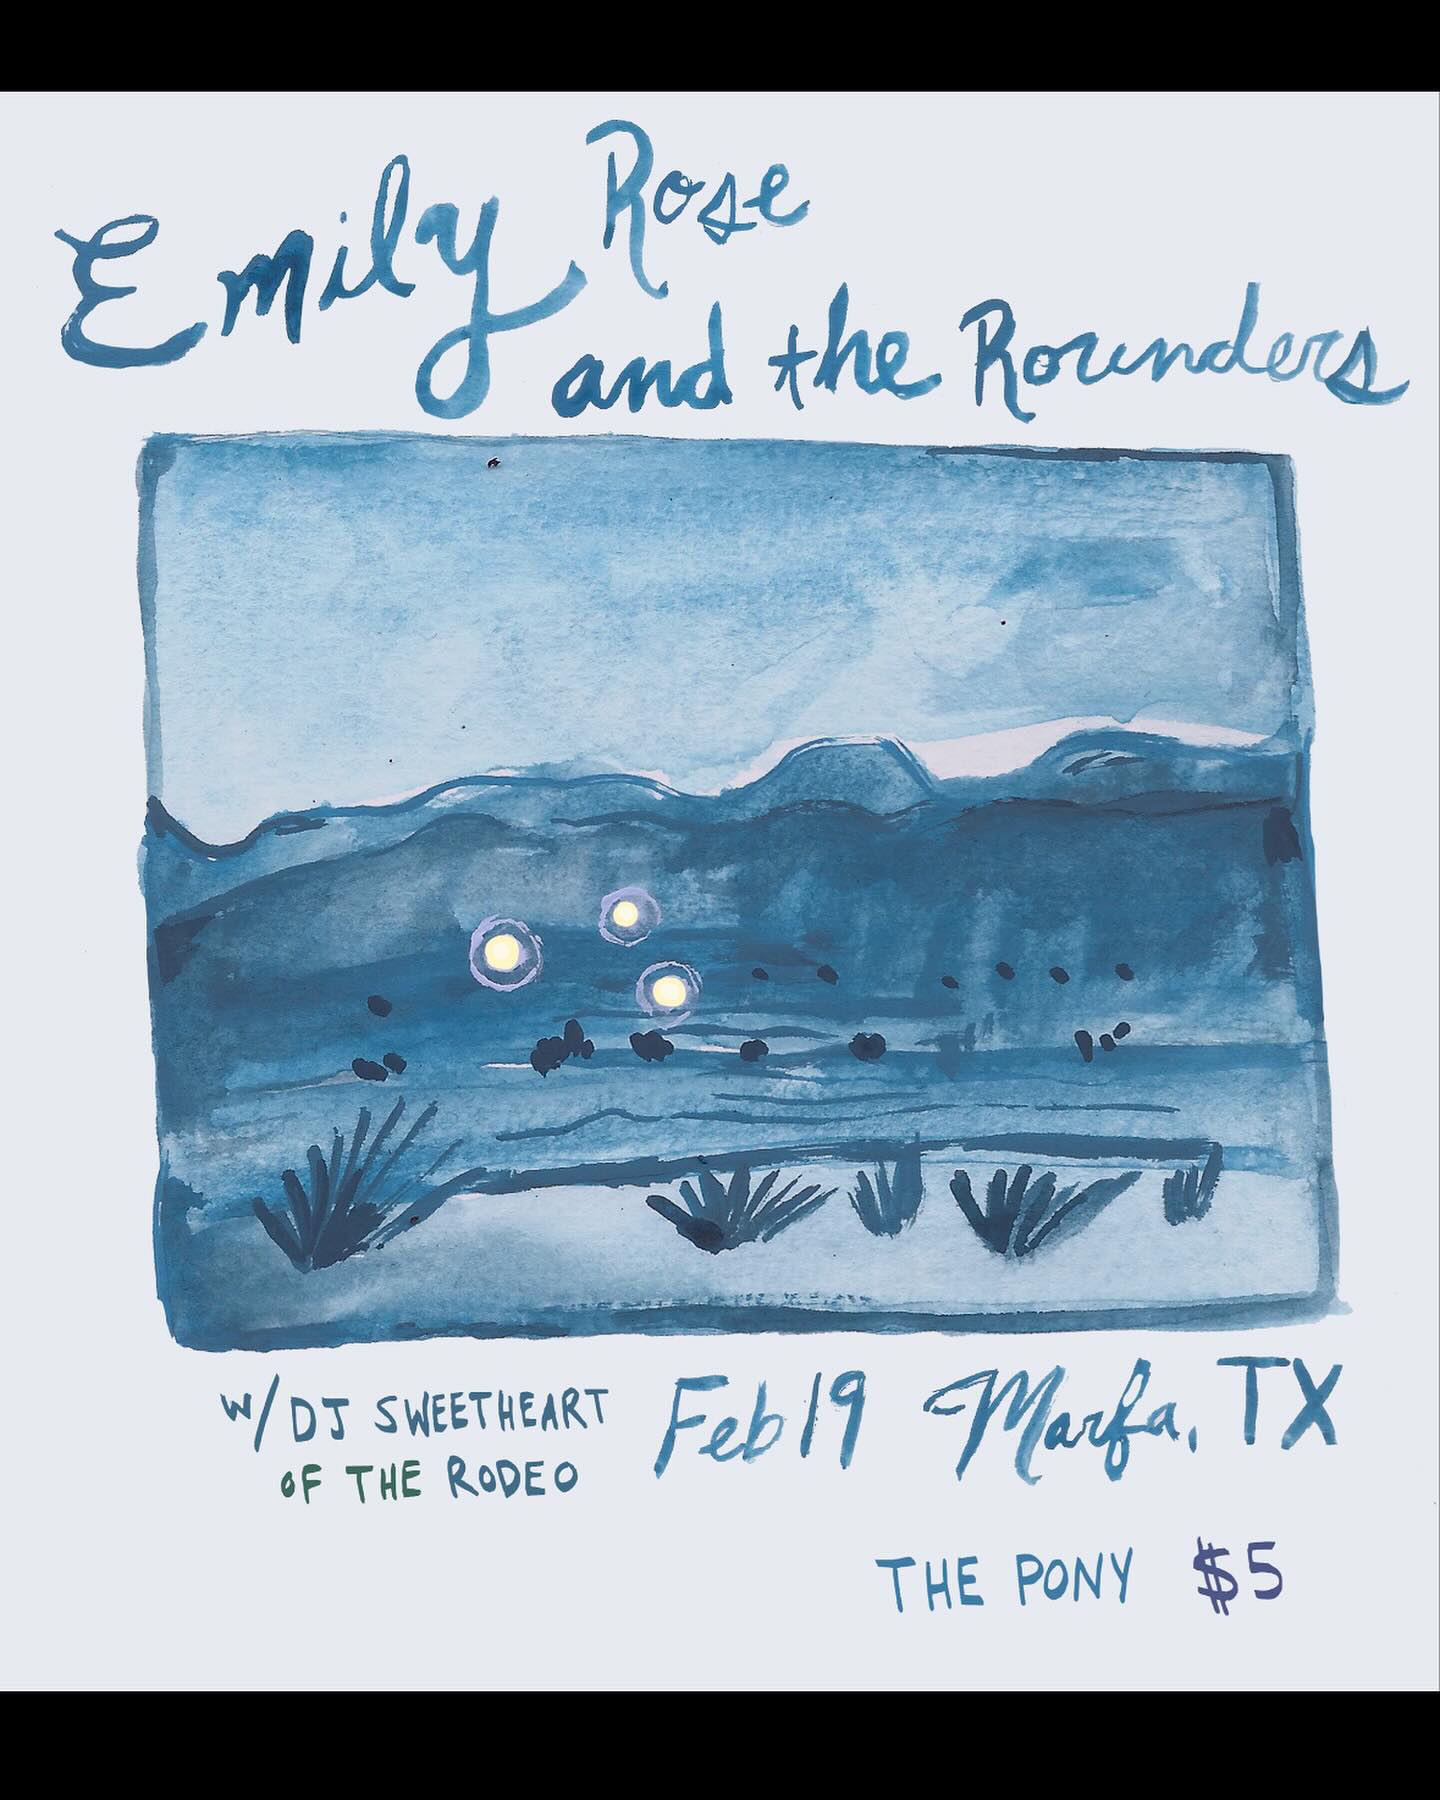 Emily Rose
and the Rounders
w/DJ SWEETHEART
OF THE RODEO
Feb 19 Marfa, TX
THE PONY $5